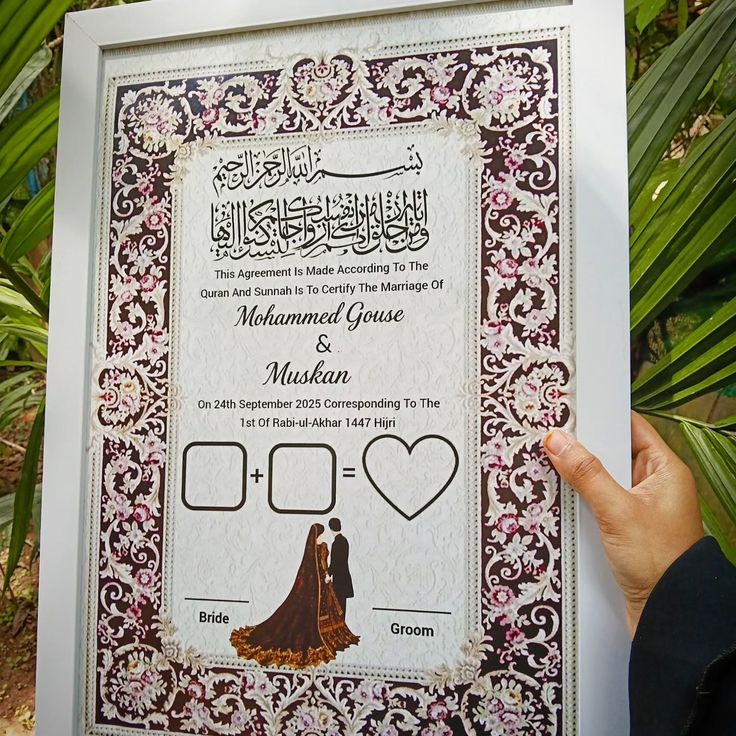 بسم الله الرحمن الرحيم
This Agreement Is Made According To The
Quran And Sunnah Is To Certify The Marriage Of
Mohammed Gouse
&
Muskan
On 24th September 2025 Corresponding To The
1st Of Rabi-ul-Akhar 1447 Hijri
+ =
Bride
Groom